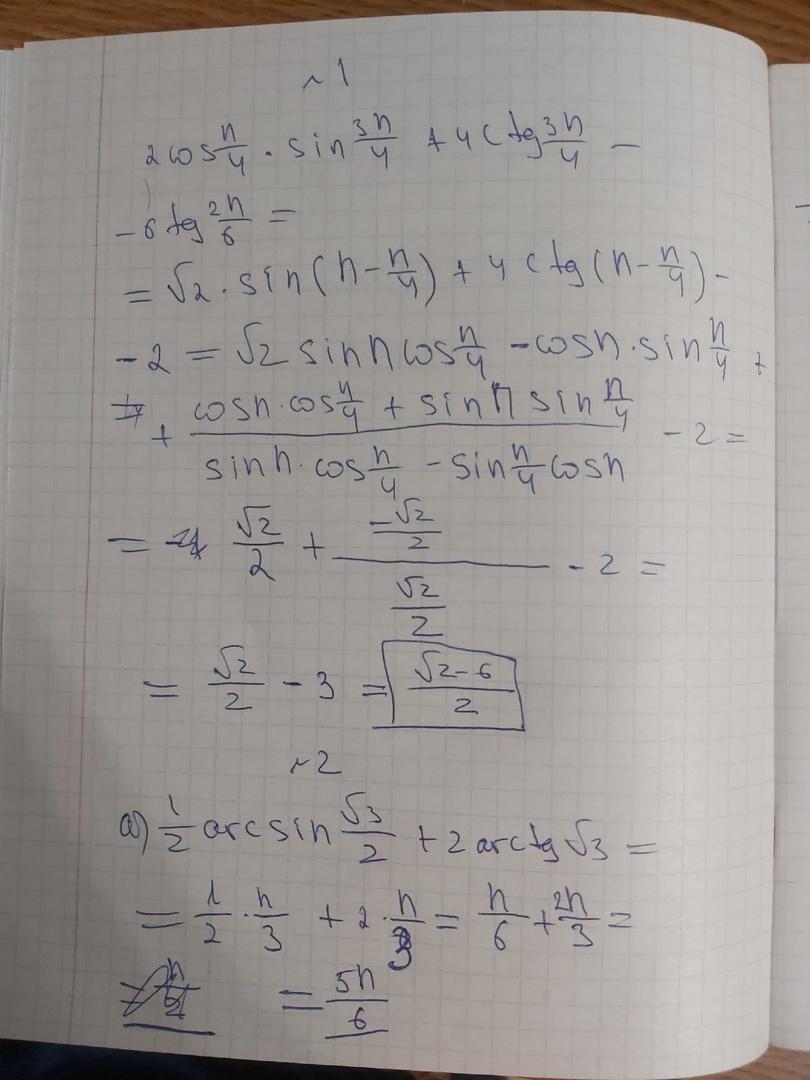 ~1
2cos π/4 · sin 3π/4 + 4ctg 3π/4 –
– 6 tg² π/6 =
= √2 · sin(π – π/4) + 4ctg(π – π/4) –
– 2 = √2 sinπ cos π/4 – cosπ · sin π/4 +
+ (cosπ · cos π/4 + sinπ sin π/4)/(sinπ · cos π/4 – sin π/4 cosπ) – 2 =
= √2/2 + (–√2/2)/(√2/2) – 2 =
= √2/2 – 3 = (√2 – 6)/2
~2
а) 1/2 arcsin √3/2 + 2arctg √3 =
= 1/2 · π/3 + 2 · π/3 = π/6 + 2π/3 =
= 5π/6